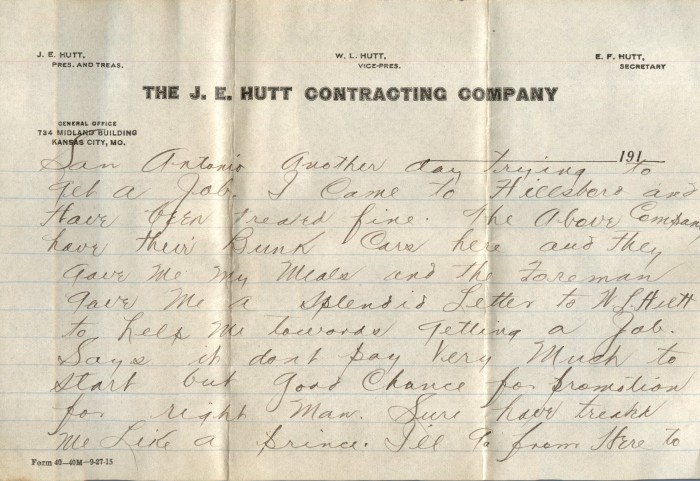 J. E. HUTT,
PRES. AND TREAS.
W. L. HUTT,
VICE-PRES.
E. F. HUTT,
SECRETARY
THE J. E. HUTT CONTRACTING COMPANY
GENERAL OFFICE
734 MIDLAND BUILDING
KANSAS CITY, MO.
191
San Antonio Another day trying to
get a Job. I Came to Hillsboro and
Have been treated fine. The Above Company
have their Bunk Cars here and they
gave me my Meals and the Foreman
gave Me a splendid Letter to
to help me towards getting a Job.
Says it dont pay Very Much to
start but good Chance for promotion
for right Man. Sure have treated
me Like a prince. I'll go from Here to
Form 40—40M—9-27-15